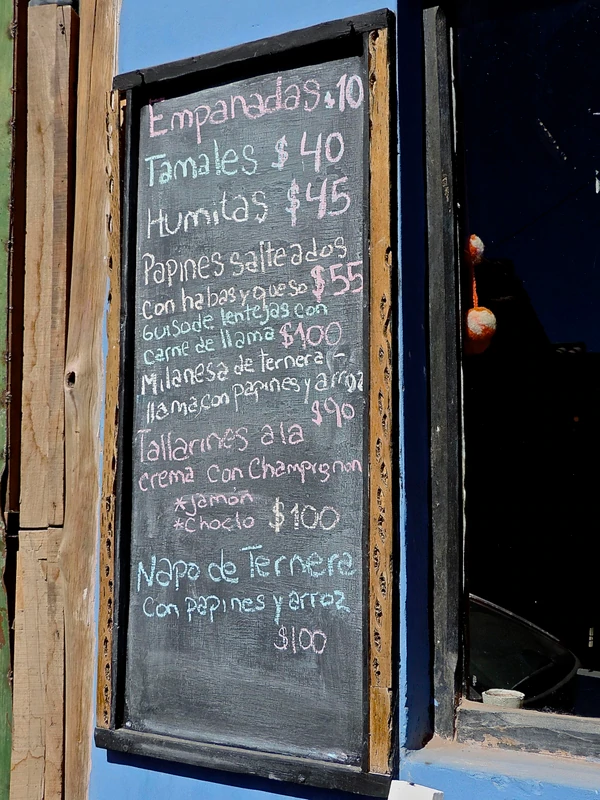 Empanadas $10
Tamales $40
Humitas $45
Papines salteados
con habas y queso $55
Guiso de lentejas con
carne de llama $100
Milanesa de ternera/-
llama, con papines y arroz
$90
Tallarines a la
crema con Champignon
*Jamón
*Choclo $100
Napo de Ternera
con papines y arroz
$100